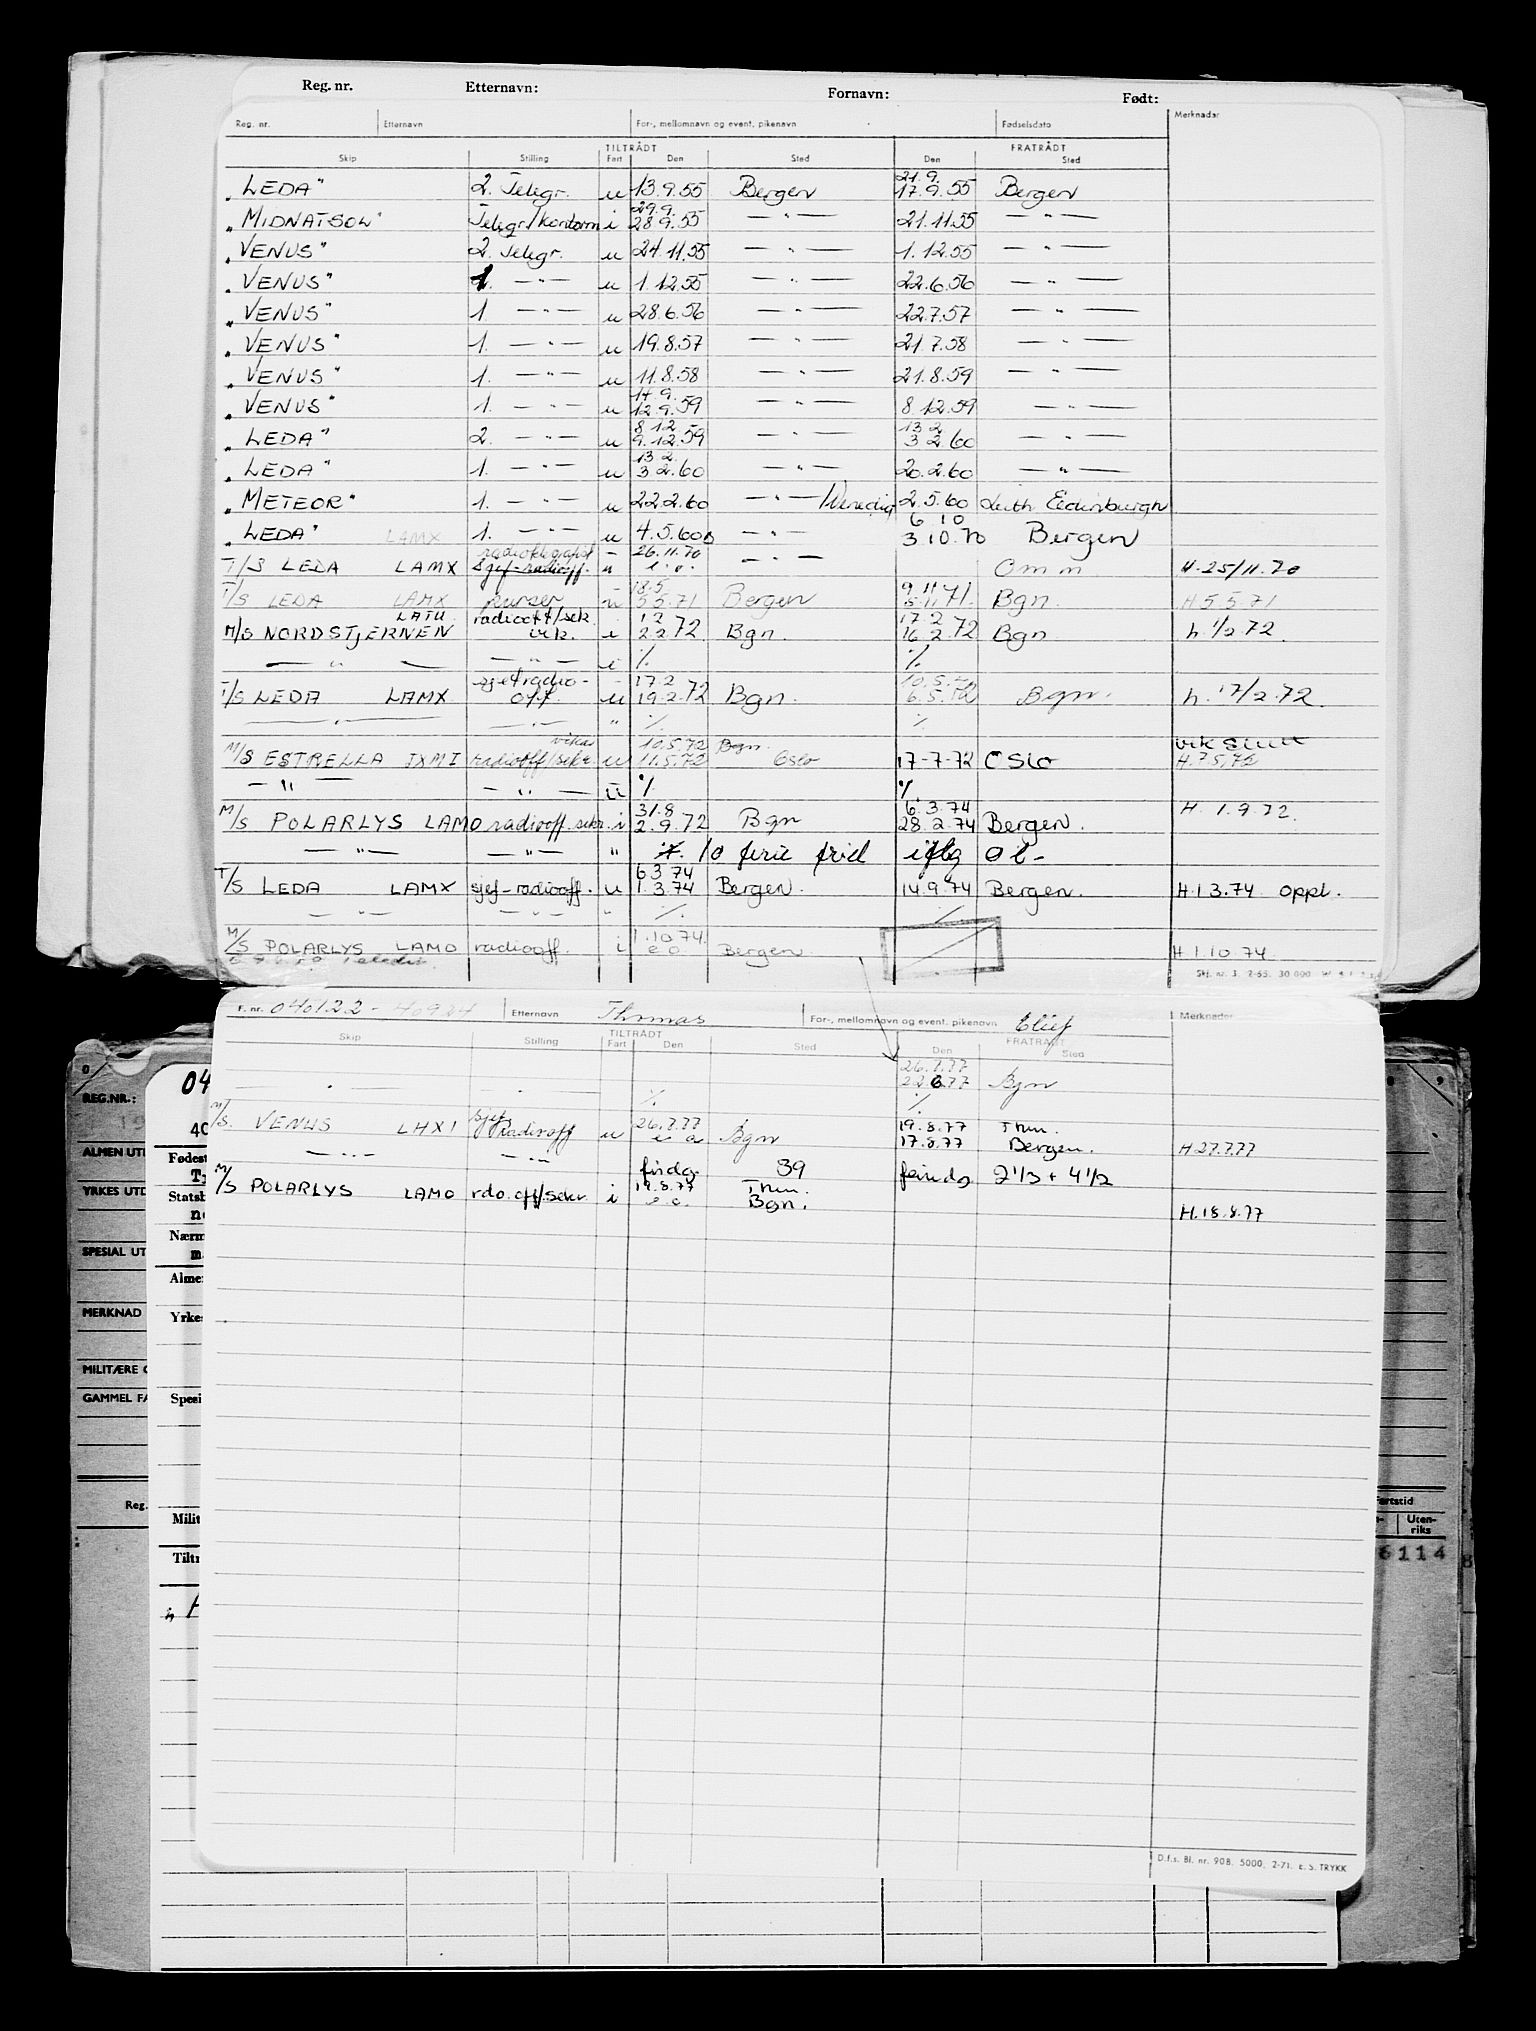 Reg. nr. Etternavn: Fornavn: Født:
Reg. nr. Etternavn For-, mellomnavn og event. pikenavn Fødselsdato Merknader
TILTRÅDT FRATRÅDT
Skip Stilling Fart Den Sted Den Sted
21.9.
„LEDA" 2. Telegr. u 13.9.55 Bergen 17.9.55 Bergen
29.9.
„MIDNATSOL" Telegr/kontorm i 28.9.55 — " — 21.11.55 — " —
„VENUS" 2. Telegr. u 24.11.55 — " — 1.12.55 — " —
„VENUS" 1. — " — u 1.12.55 — " — 22.6.56 — " —
„VENUS" 1. — " — u 28.6.56 — " — 22.7.57 — " —
„VENUS" 1. — " — u 19.8.57 — " — 21.7.58 — " —
„VENUS" 1. — " — u 11.8.58 — " — 21.8.59 — " —
14.9.
„VENUS" 1. — " — u 12.9.59 — " — 8.12.59 — " —
8.12 13.2
„LEDA" 2. — " — u 9.12.59 — " — 3.2.60 — " —
13.2.
„LEDA" 1. — " — u 3.2.60 — " — 20.2.60 — " —
„METEOR" 1. — " — u 22.2.60 — " — /Venedig 2.5.60 Leith Edinburgh
6 10
„LEDA" LAMX 1. — " — u 4.5.60 — " — 3.10.70 Bergen
radiotelegrafist - 26.11.70
T/S LEDA LAMX sjef-radiooff. u e.o. — " — Omm H.25/11.70
18.5 9.11
T/S LEDA LAMX purser u 5.5.71 Bergen 5.11.71. Bgn. H 5.5.71
LATU radiooff/sek. 1.2 17.2
M/S NORDSTJERNEN vik. i 2.2.72. Bgn. 16.2.72 Bgn h.1/2.72.
— " — — " — i % %
sjefradio- - 17.2 10.5.72
T/S LEDA LAMX off. u 19.2.72 Bgn. 6.5.72 Bgn. h. 17/2.72.
— " — — " — " % %
vikar 10.5.72 Bgn. vik slutt
M/S ESTRELLA JXMI radiooff/sekr u 11.5.72 Oslo 17-7-72 Oslo H.7.5.72
— " — — " — u % %
31.8 6.3.74 H. 1.9.72.
M/S POLARLYS LAMO radiooff. sekr. i 2.9.72 Bgn 28.2.74 Bergen.
— " — — " — " 10 ferie frid iflg
6 3 74
T/S LEDA LAMX sjef-radiooff. u 1.3.74 Bergen. 14.9.74 Bergen. H.1 3.74 oppl.
— " — — " — " % %
1.10.74.
M/S POLARLYS LAMO radiooff. i e.o. Bergen H 1.10.74
Skj. nr. 3. 2-65. 30 000.
F. nr. 040122 - 40984 Etternavn Thomas For-, mellomnavn og event. pikenavn Elief Merknader
TILTRÅDT FRATRÅDT
Skip Stilling Fart Den Sted Den Sted
26.7.77
— " — — " — % 22.6.77 Bgn
%
sjef- 26.7.77 19.8.77 Thm.
M/S. VENUS LHXI radiooff u e o Bgn 17.8.77 Bergen. H.27.7.77
— " — — " — 39 2 1/3 + 4 1/2
19.8.77 Thm.
M/S POLARLYS LAMO rdo.off/sekr. i e.o. Bgn. H.18.8.77
D.f.s. Bl. nr. 90B. 5000. 2-71. E.S. TRYKK
04
REG.NR.:
40
ALMEN UT
Fødest
YRKES UTD
Statsb
Nærm
SPESIAL UT
Alme
MERKNAD
Yrkes
MILITÆRE
GAMMEL FA
Spesi
Reg.
Milit
Tiltr
Fartstid
Uten-
riks
6114